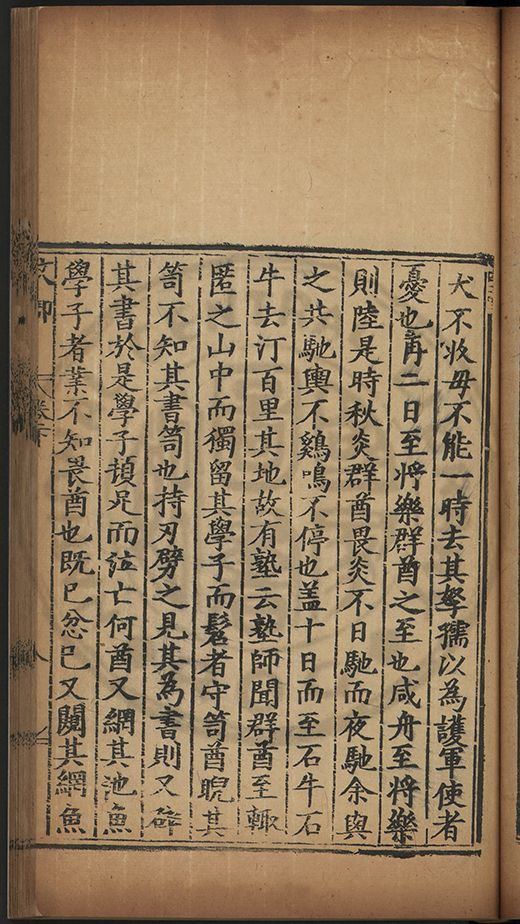 犬不收毋不能一時去其孥孺以為護軍使者
憂也再二日至將樂群酋之至也咸舟至將樂
則陸是時秋炎群酋畏炎不日馳而夜馳余與
之共馳輿不鷄鳴不停也盖十日而至石牛石
牛去汀百里其地故有塾云塾師聞群酋至輙
匿之山中而獨留其學子而髢者守笥酋睨其
笥不知其書笥也持刃劈之見其為書則又碎
其書於是學子頓足而泣亡何酋又網其池魚
學子者業不知畏酋也既已忿已又闚其網魚
卷下